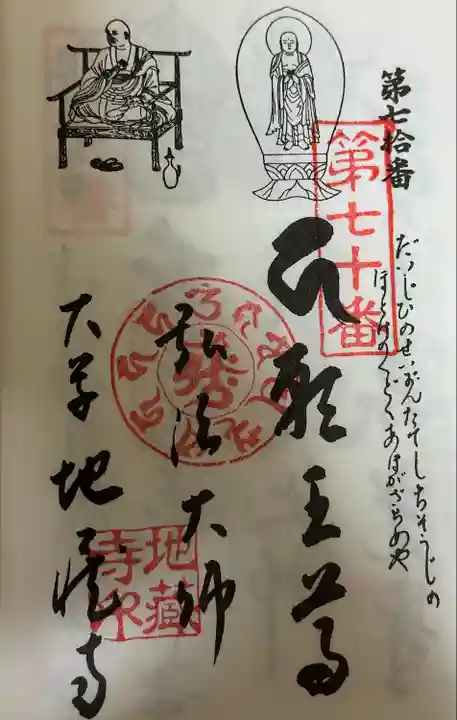 第七拾番
第七十番
だいじひのせいがんたてしちぞうじの
ほとけのくどくあほがざらめや
願王尊
弘法大師
大草 地蔵寺
地蔵寺印